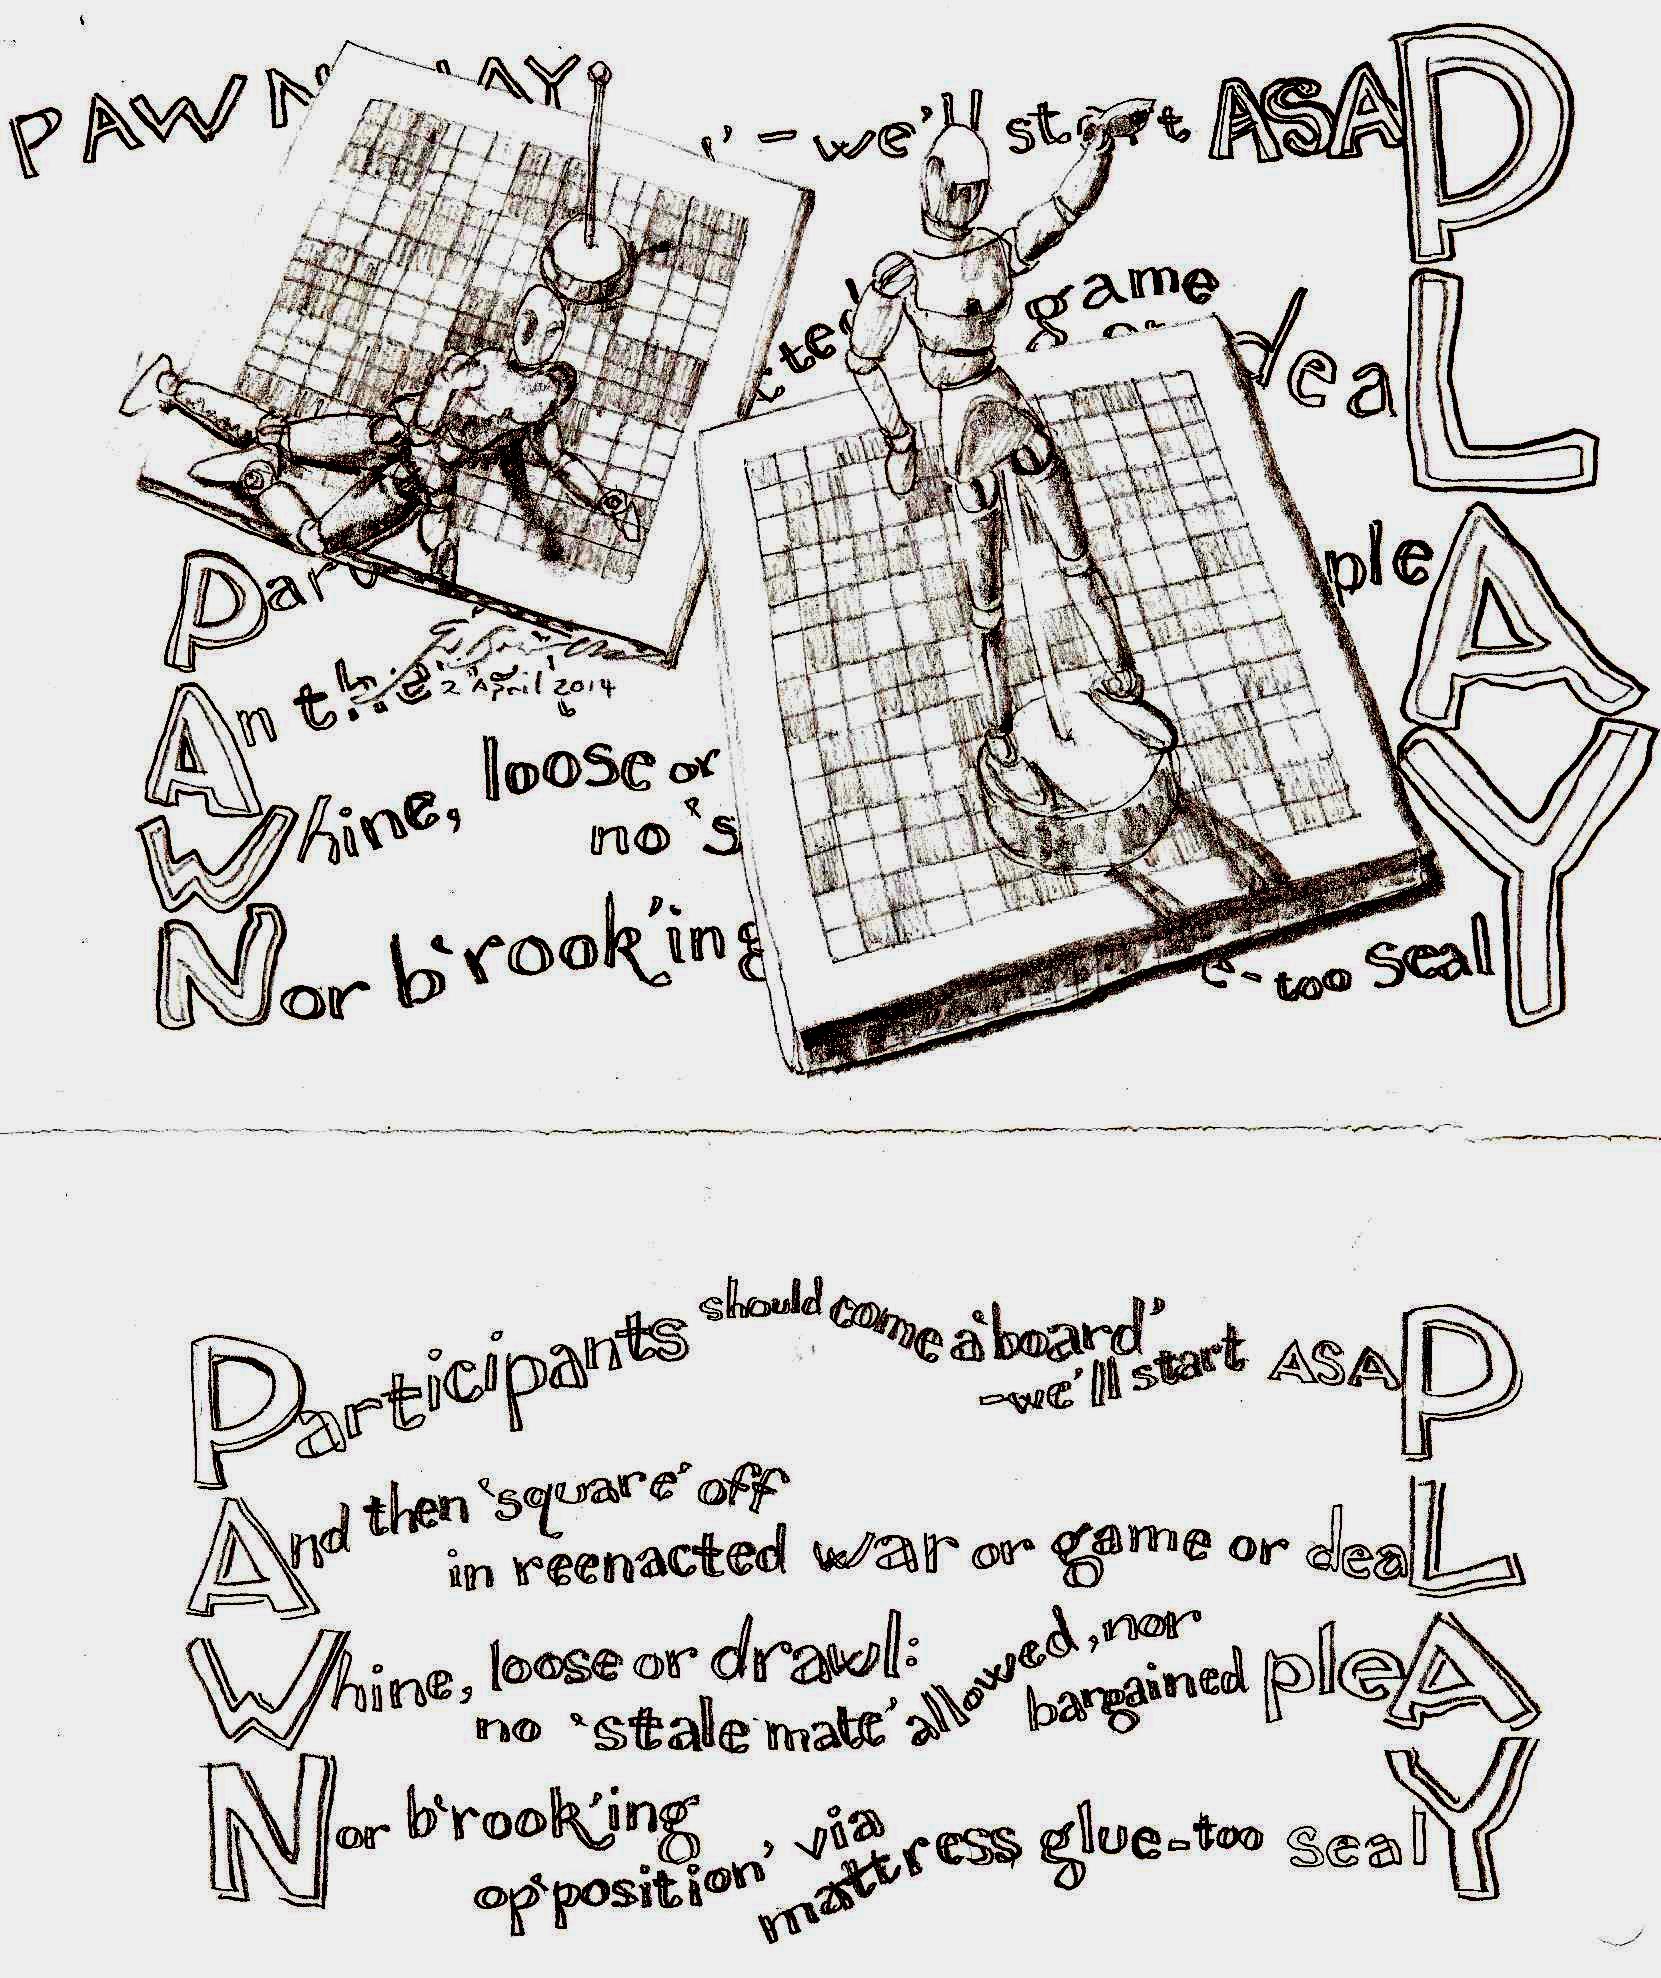 PAWN
- we'll start ASAP
game
deaL
pleA
An
Whine, loose or
no 's
Nor b'rook'ing
- too sealY
2 April 2014
Participants should come a'board'
- we'll start ASAP
And then 'square' off
in reenacted war or game or deaL
Whine, loose or drawl:
no 'stale mate' allowed, nor
bargained pleA
Nor b'rook'ing
op'position' via
mattress glue-too sealY